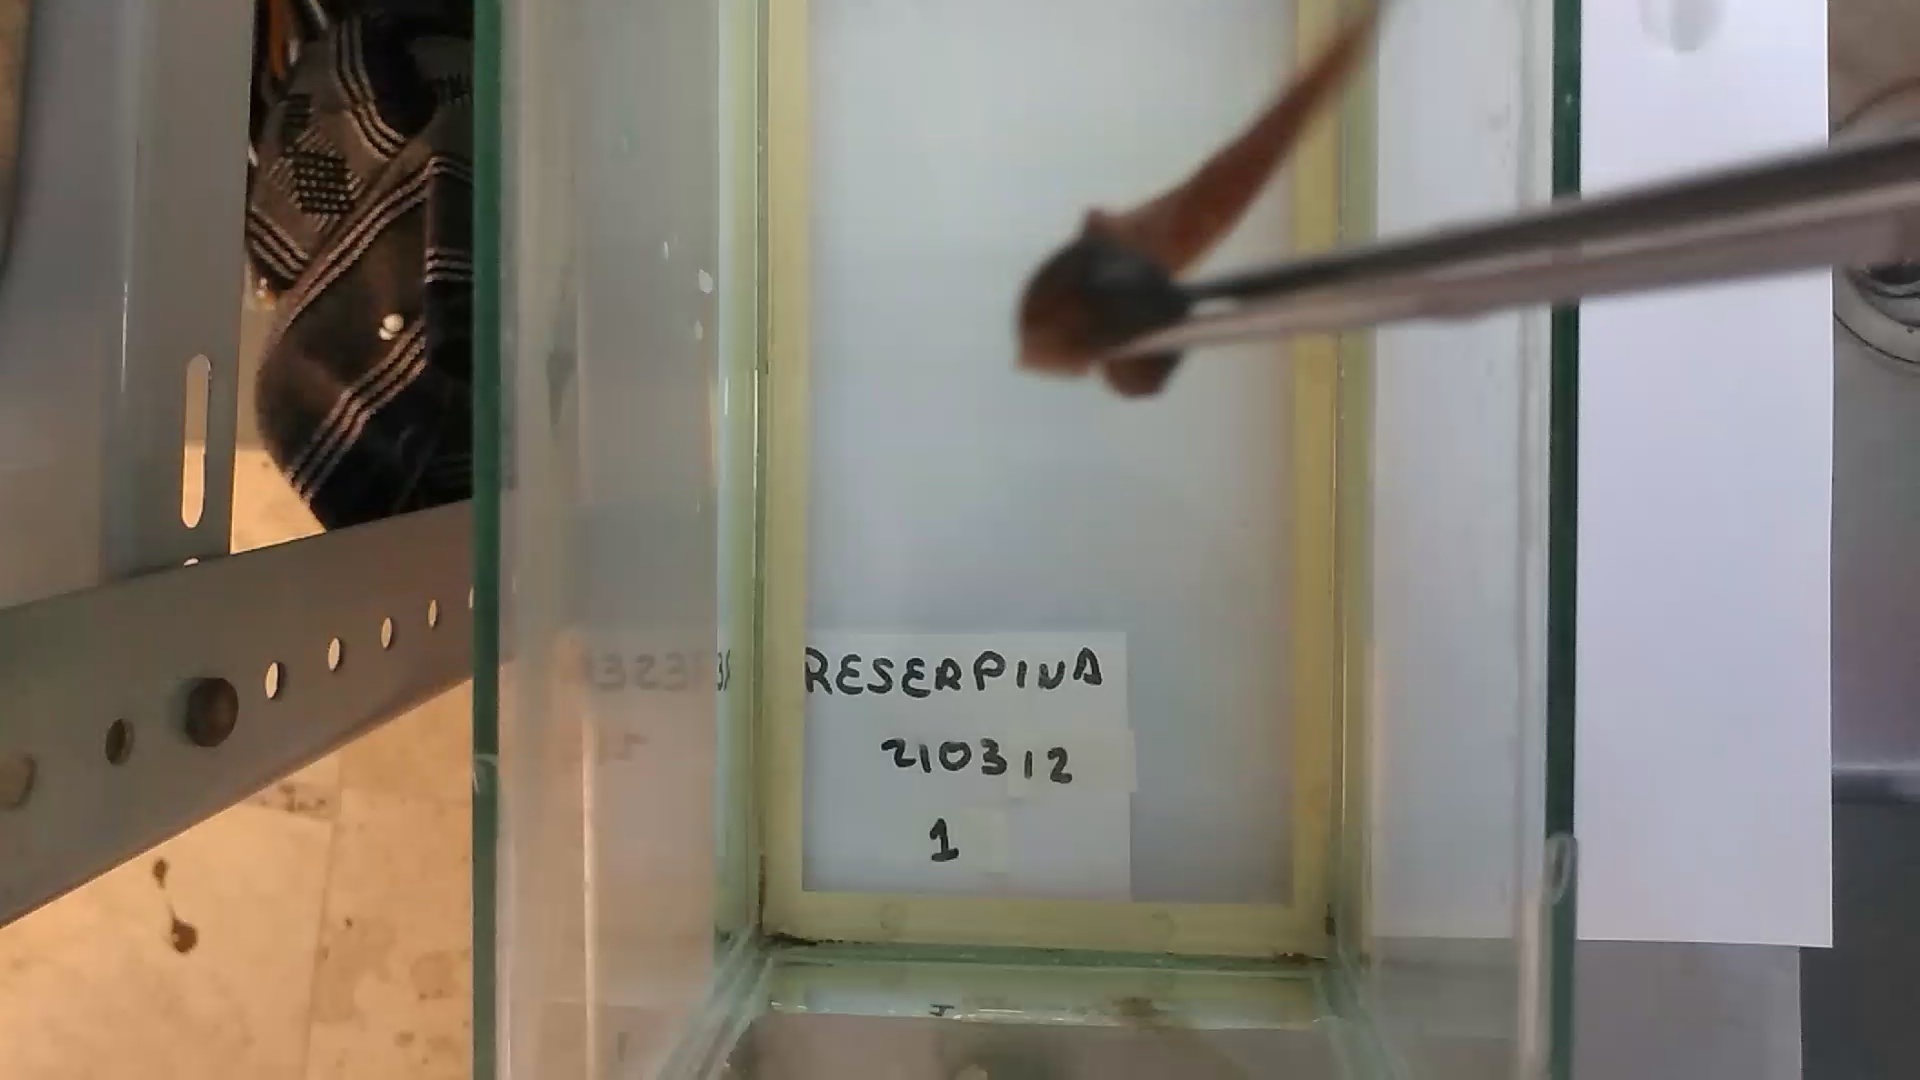 RESERPINA
210312
1